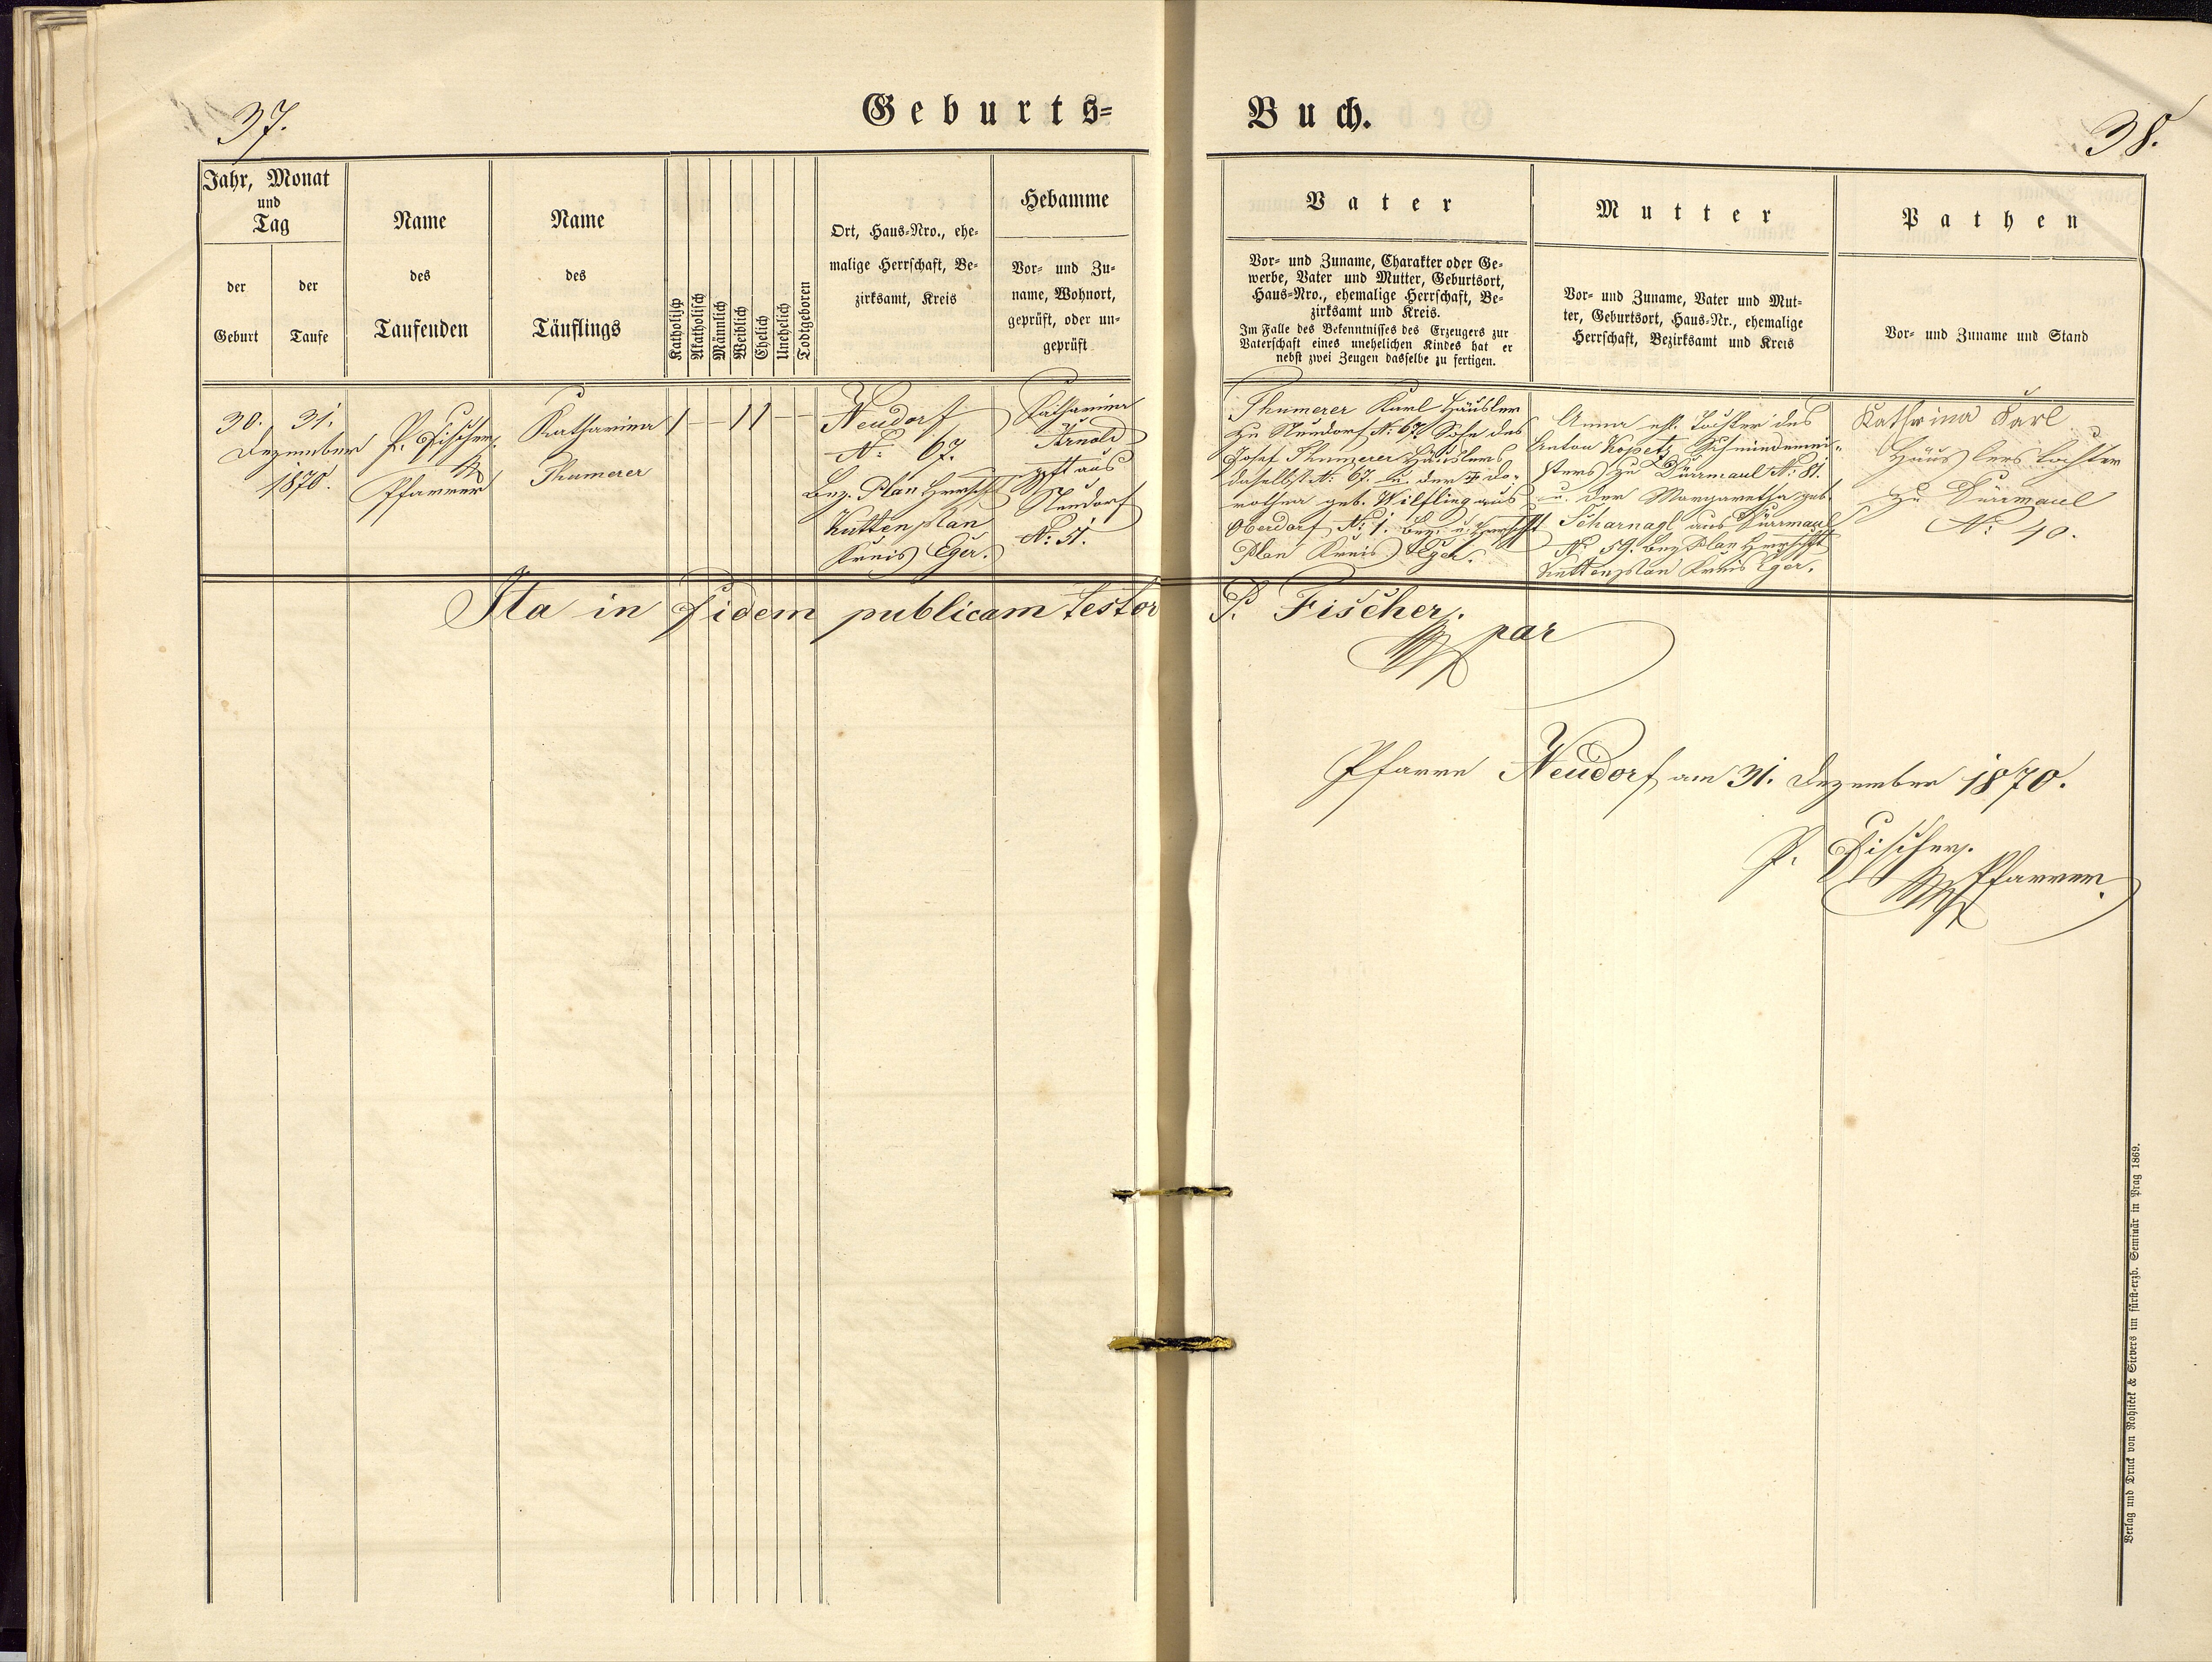 37.
Geburts=
Buch.
38.
Jahr, Monat
und
Tag
der
Geburt
der
Taufe
Name
des
Taufenden
Name
des
Täuflings
Katholisch
Akatholisch
Männlich
Weiblich
Ehelich
Unehelich
Todtgeboren
Ort, Haus=Nro., ehe=
malige Herrschaft, Be=
zirksamt, Kreis
Hebamme
Vor= und Zu=
name, Wohnort,
geprüft, oder un=
geprüft
Vater
Vor= und Zuname, Charakter oder Ge=
werbe, Vater und Mutter, Geburtsort,
Haus=Nro., ehemalige Herrschaft, Be=
zirksamt und Kreis.
Im Falle des Bekenntnisses des Erzeugers zur
Vaterschaft eines unehelichen Kindes hat er
nebst zwei Zeugen dasselbe zu fertigen.
Mutter
Vor= und Zuname, Vater und Mut=
ter, Geburtsort, Haus=Nr., ehemalige
Herrschaft, Bezirksamt und Kreis
Pathen
Vor= und Zuname und Stand
30. 31.
Dezember
1870.
P. Fischer,
Pfarrer
Katharina
Thumerer
Neudorf
N: 67.
Bez. Plan Herrschft
Kuttenplan
Kreis Eger.
Katharina
Arnold
gpft aus
Neudorf
N: 51.
Thumerer Karl Häusler
zu Neudorf N: 67. Sohn des
Josef Thumerer Häuslers
daselbst N: 67. u. der Do=
rothea geb. Wilfling aus
Oberdorf N: 1. Bez. u. Herrschft
Plan Kreis Eger.
Anna ehl. Tochter des
Anton Kopet, Schmiedemei=
sters zu Dürrmaul N: 81.
u. der Margaretha geb.
Scharnagl aus Dürrmaul
N: 59. Bez Plan Herrschft
Kuttenplan Kreis Eger.
Kathrina Karl
Häuslerstochter
zu Dürrmaul
N: 40.
Ita in fidem publicam testor P. Fischer,
par
Pfarre Neudorf am 31. Dezember 1870.
P. Fischer,
Pfarrer.
Verlag und Druck von Rohliček & Sievers im fürst=erzb. Seminär in Prag 1869.